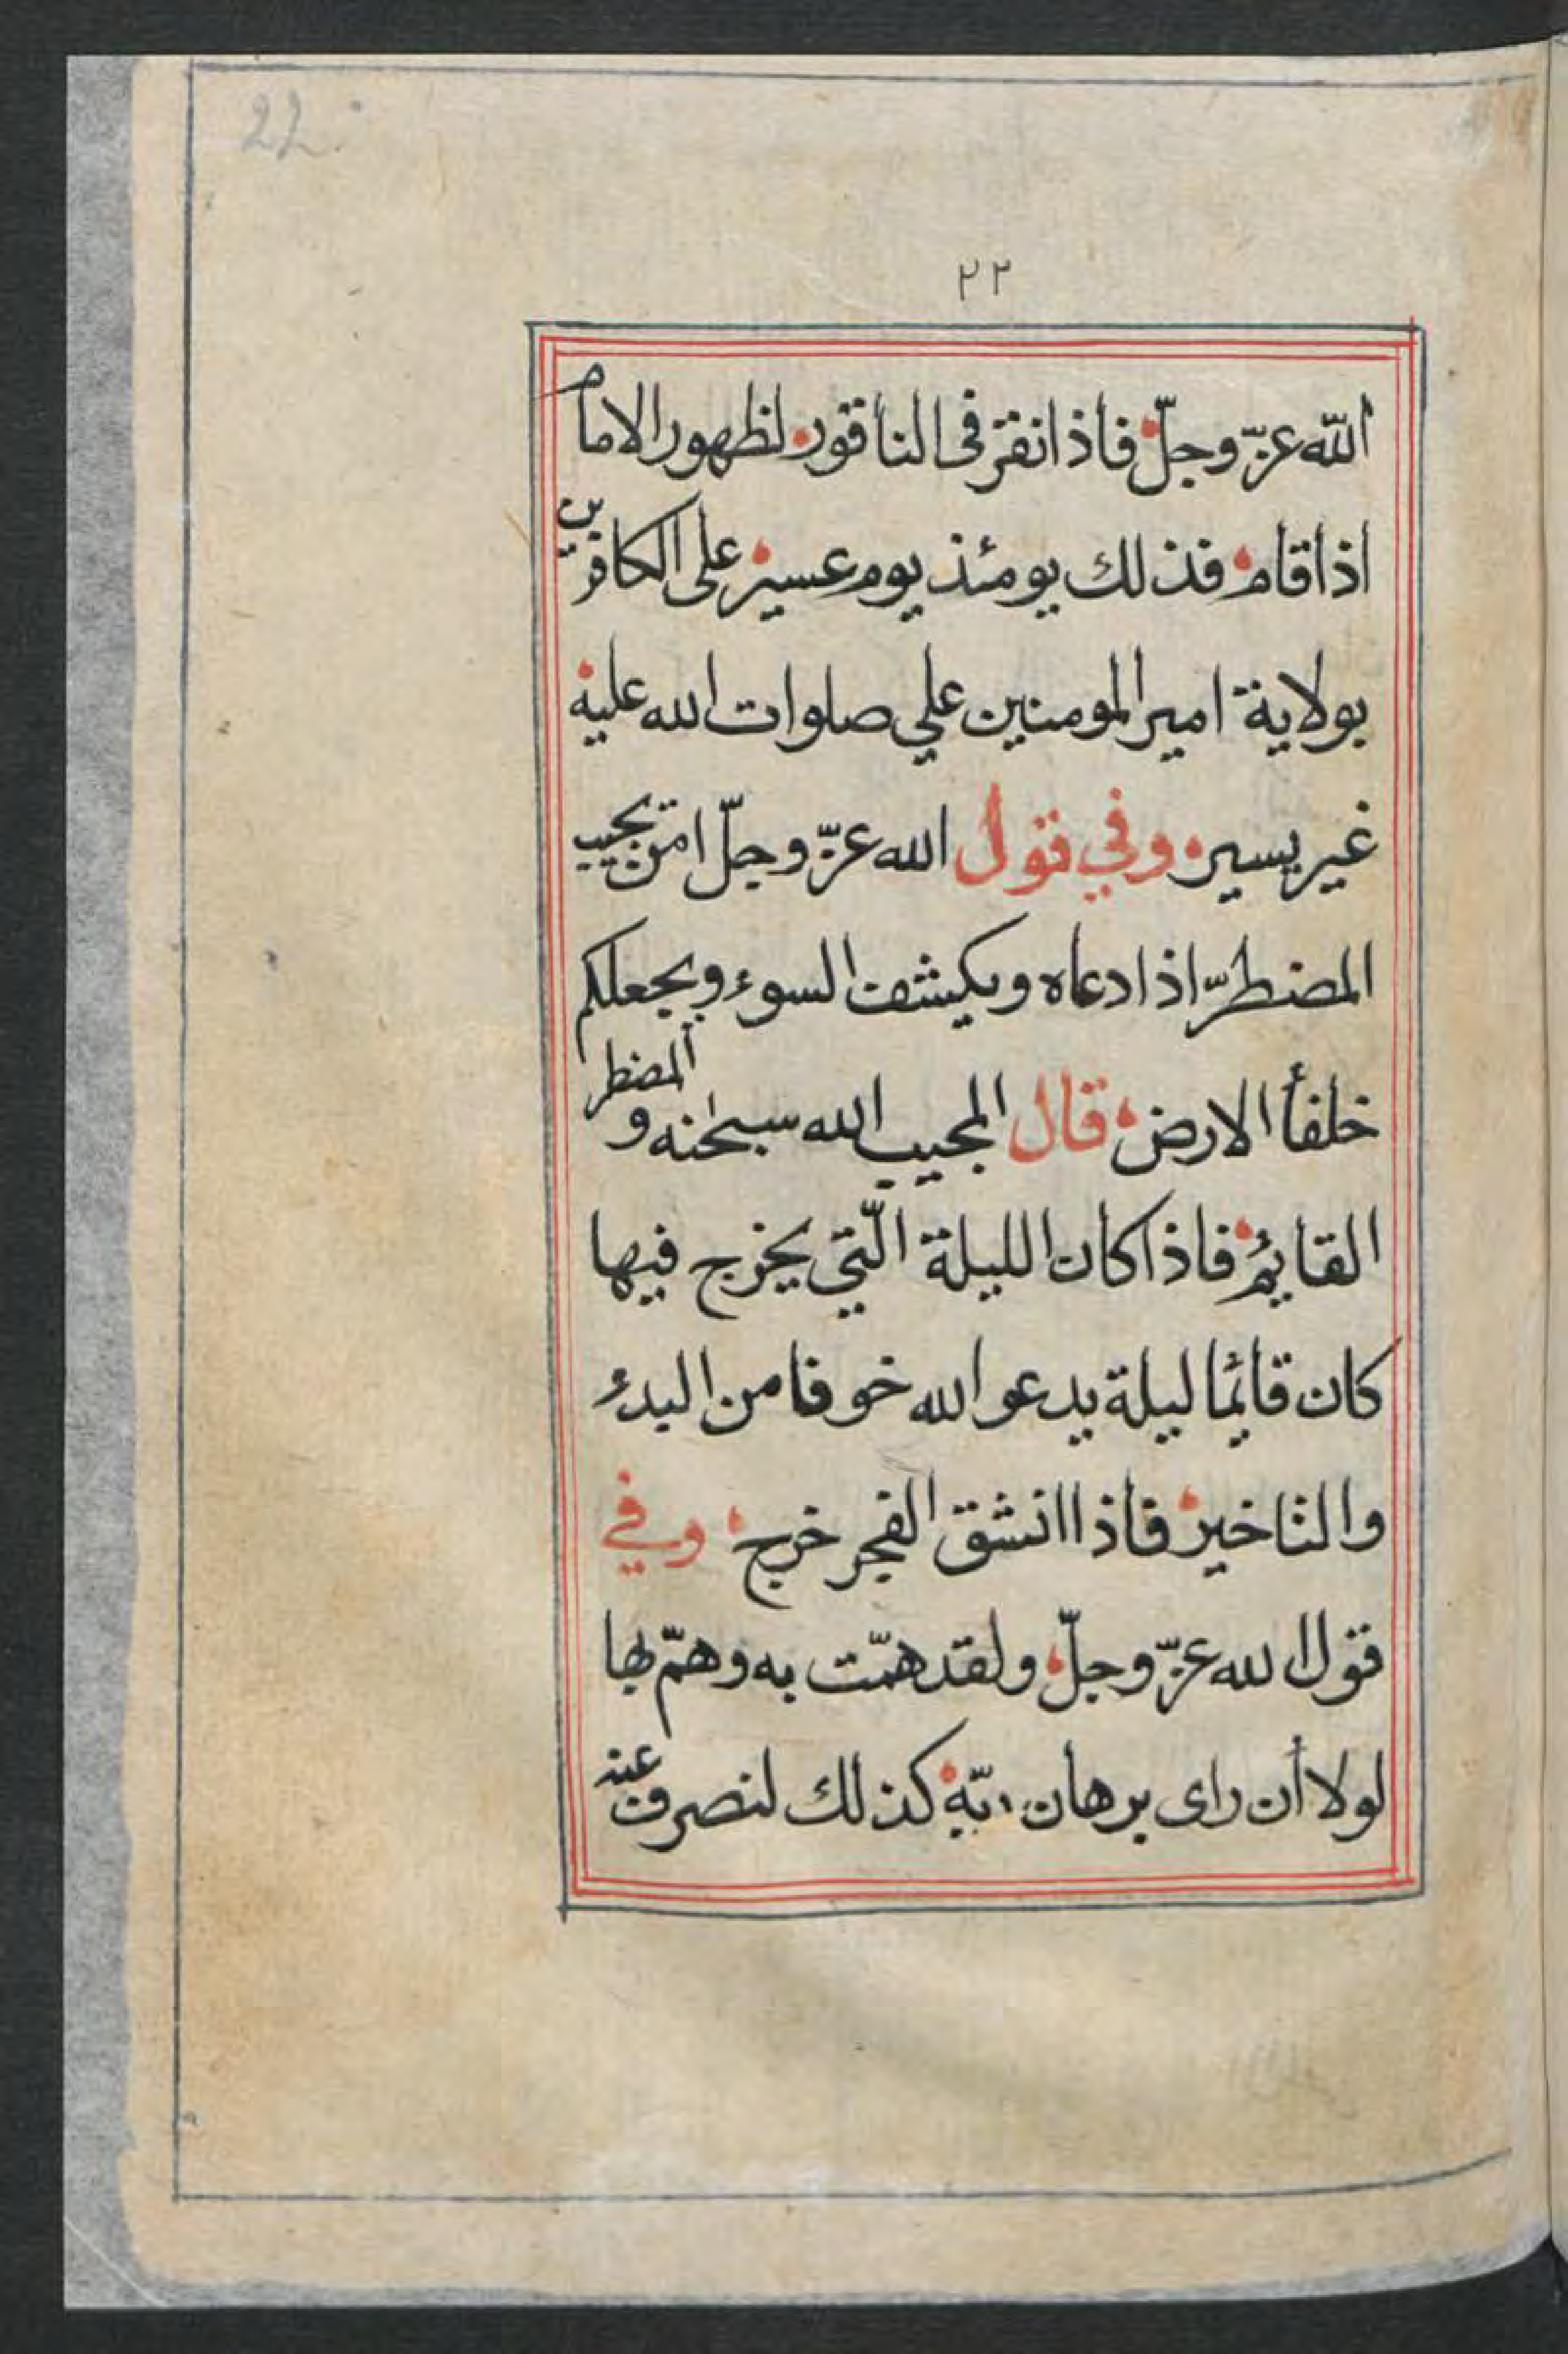 22.
٢٢
الله عزّ وجلّ فاذا نقر فى الناقور لظهور الامام
اذا قام فذلك يومئذ يوم عسير على الكافرين
بولاية امير المومنين علي صلوات الله عليه
غير يسير وفي قول الله عزّ وجلّ امّن يجيب
المضطرّ اذا دعاه ويكشف السوء ويجعلكم
خلفأ الارض قال المجيب الله سبحٰنه و المضطر
القايئم فاذا كان الليلة الّتي يخرج فيها
كان قايئما ليلة يدعو الله خوفا من البدء
والتاخير فاذا انشق الفجر خرج وفي
قول الله عزّ وجلّ ولقد همّت به وهمّ بها
لولا أن راى برهان ربّه كذلك لنصرف عنه